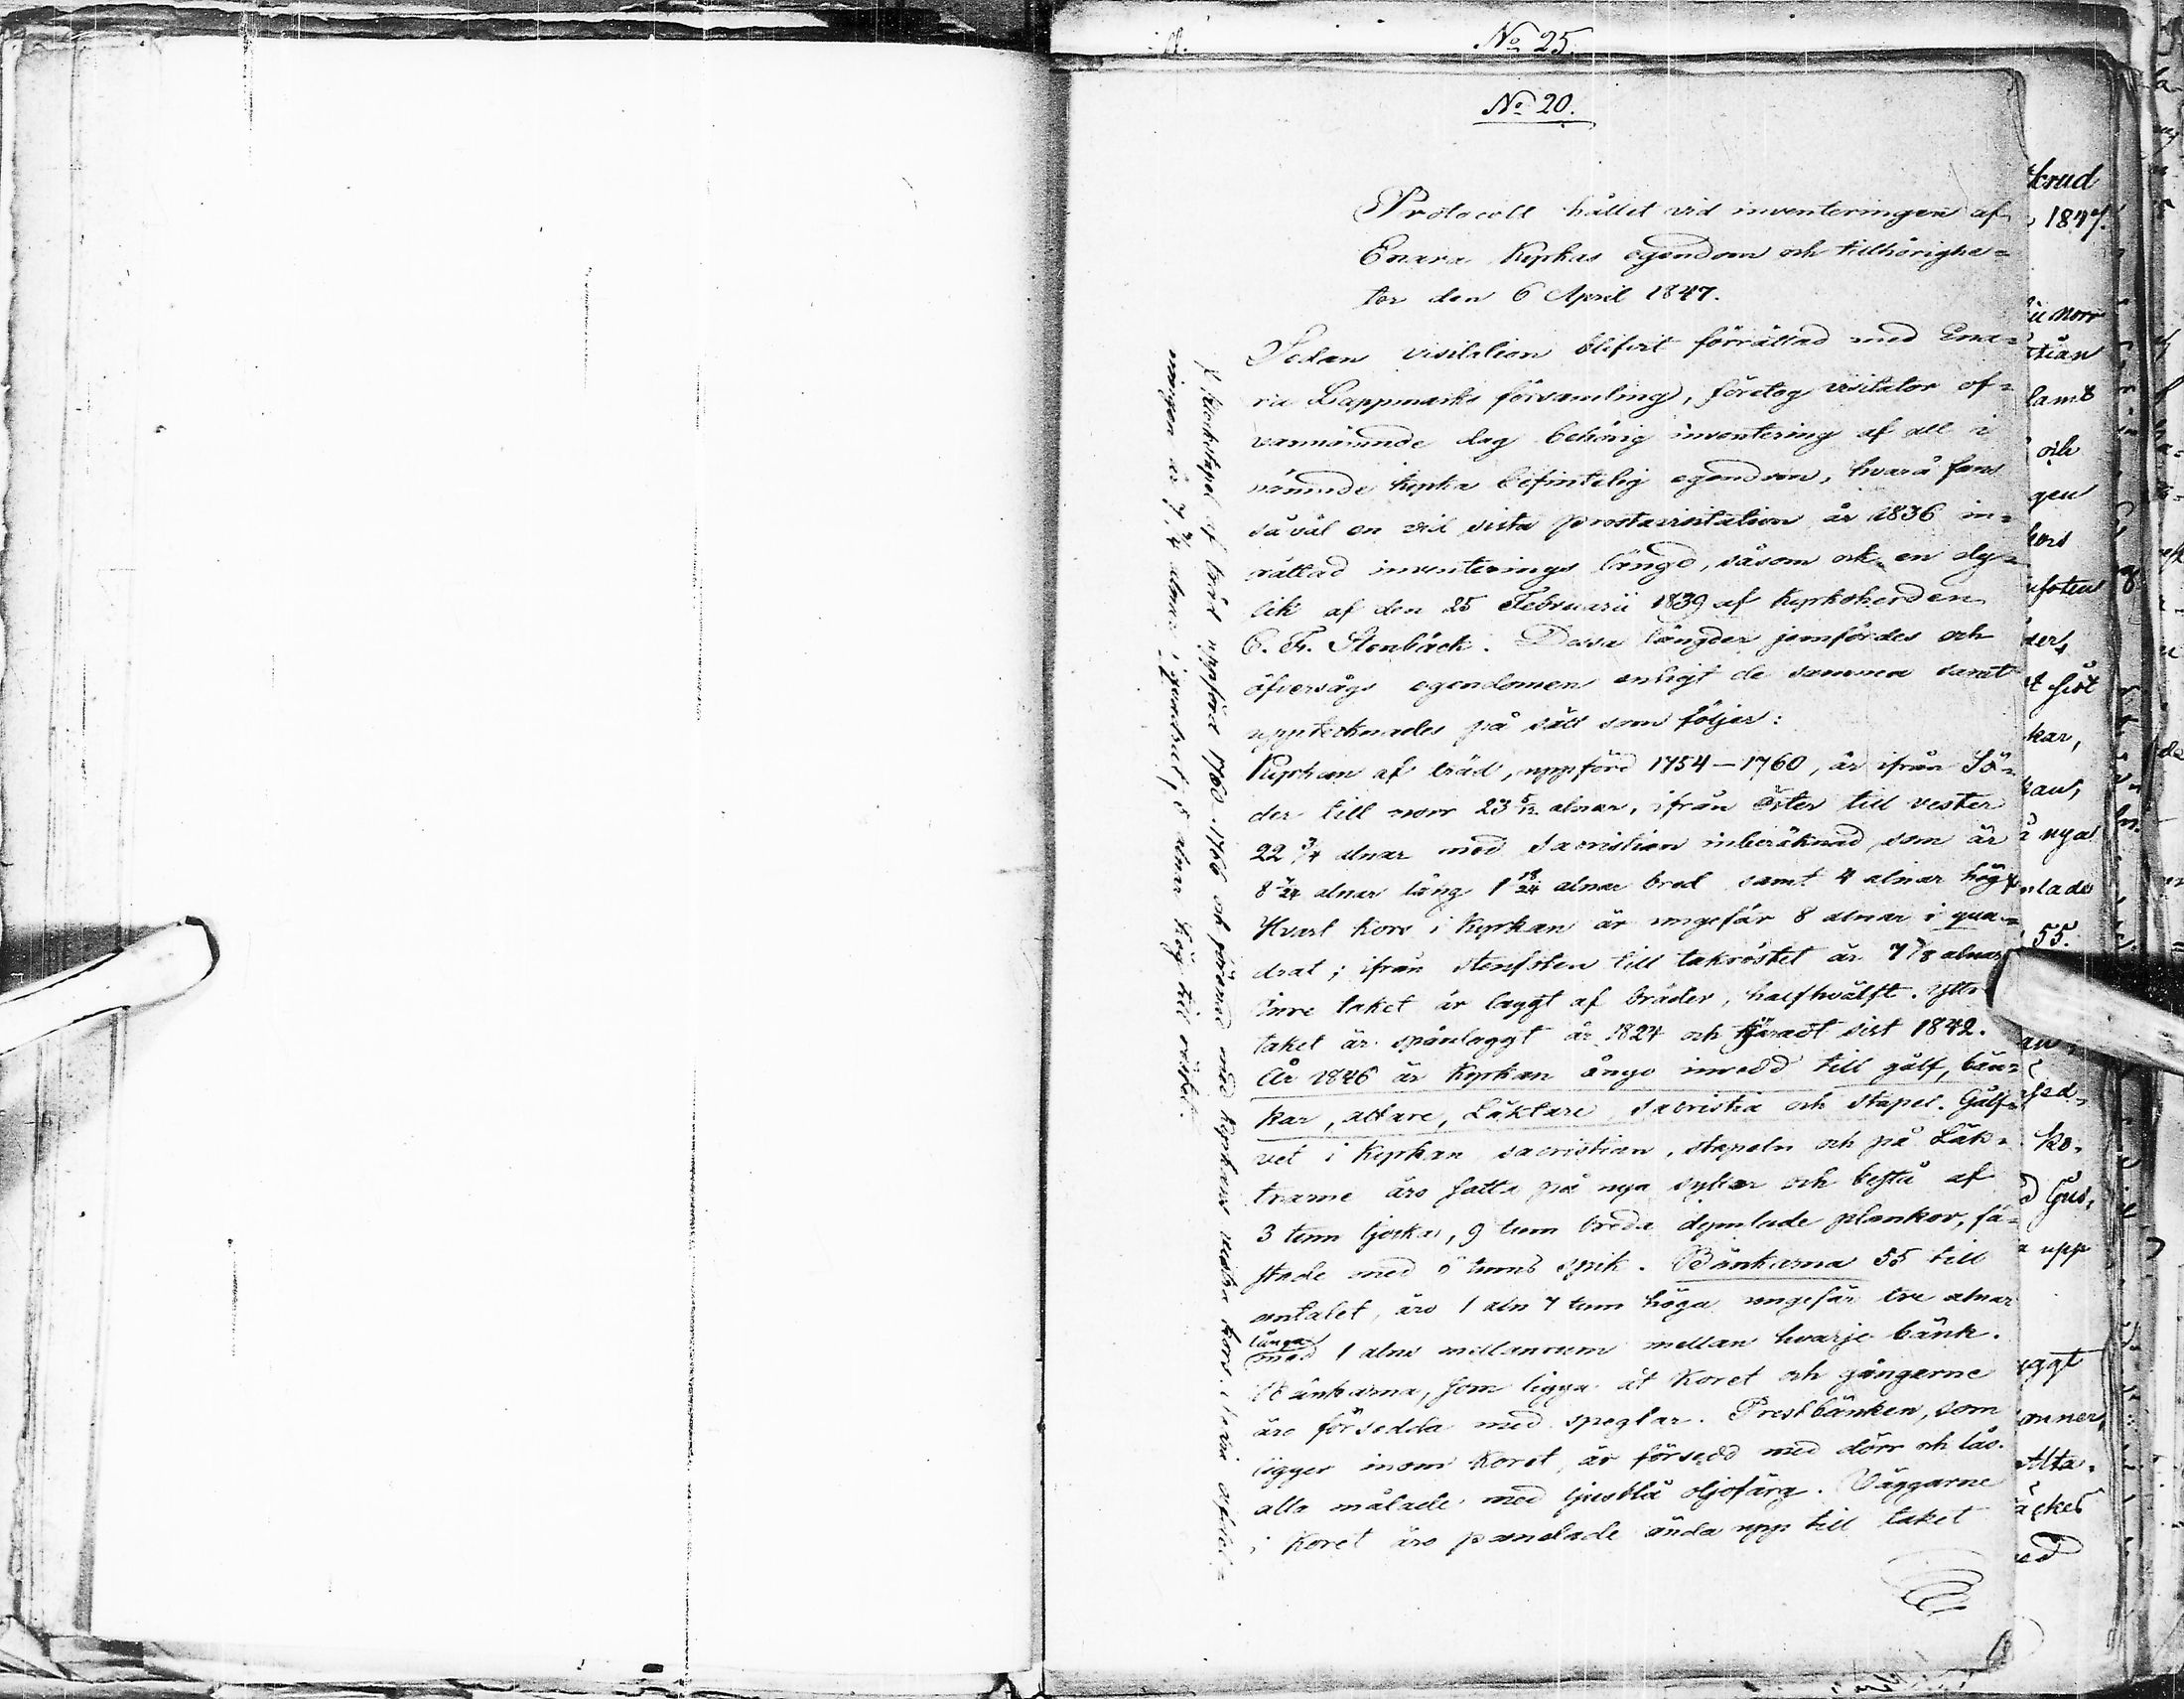 No 25.
No 20.
Protocoll hållet vid inventeringen af
Enara Kyrkas egendom och tillhörighe=
ter den 6 April 1847.
Sedan visitation blifvit förrättad med Ena=
ra Lappmarks församling, företog visitator of=
vannämnde dag behörig inventering af all i
nämnde kyrka befintelig egendom, hvarå fans
såväl en vid sista prostavisitation år 1836 in=
rättad inventerings längd, såsom ock en dy=
lik af den 25 Februarii 1839 af kyrkoherden
E. Fr. Stenbäck. Dessa längder jemfördes och
öfversågs egendomen enligt de samma samt
upptecknades på sätt som följer:
Kyrkan af träd, uppförd 1754—1760, är ifrån Sö=
der till norr 23 5/12 alnar, ifrån öster till vester
22 3/4 alnar med Sacristian inberäknad, som är
8 alnar lång 1 18/24 alnar bred samt 4 alnar hög
Hvart kors i Kyrkan är ungefär 8 alnar i qua=
drat; ifrån stenfoten till takröstet är 7 7/8 alnar
Inre taket är laggt af bräder, halfhvälft. Yttre
taket är spånlaggt år 1824 och tjäradt sist 1842.
År 1846 är Kyrkan ånyo inredd till gålf, bän=
kar, altare, Läktare, sacristia och stapel. Gålf=
vet i Kyrkan sacristian, stapeln och på Läk=
trarne äro satta på nya syllar och bestå af
3 tum tjocka, 9 tum breda dymlade plankor, fä=
stade med 6 tums spik. Bänkarna 55 till
antalet, äro 1 aln 7 tum höga ungefär tre alnar
långa
med 1 alns mellanrum mellan hvarje bänk.
Bänkarna, som ligga åt Koret och gångerne
äro försedda med speglar. Prestbänken, som
ligger inom Koret, är försedd med dörr och lås.
alla målade med ljusblå oljofärg. Väggarne
i Koret äro panelade ända upp till taket
Klockstapel af träd uppförd 1760–1766 och förenad med kyrkans vestra kors.
är 7 3/4 alnar i quadrat, 8 alnar hög till röstet.
krud
1847.
norr
och
gen
kors
kar,
nya
55.
ko=
upp